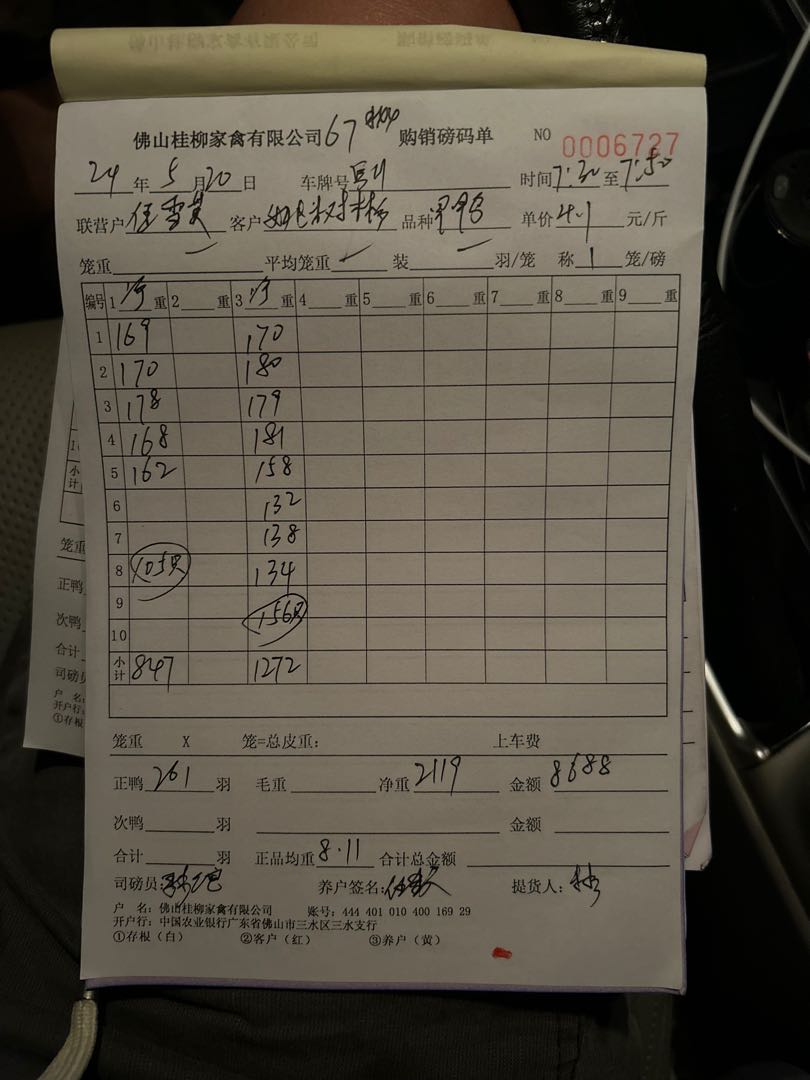 佛山桂柳家禽有限公司 67 购销磅码单 NO 0006727
24年5月20日 车牌号 时间7:30至7:50
联营户 客户 品种 单价4.1元/斤
笼重 平均笼重 装 羽/笼 称1笼/磅
编号 1 重 2 重 3 重 4 重 5 重 6 重 7 重 8 重 9 重
1 169 170
2 170 180
3 178 179
4 168 181
5 162 158
6 132
7 138
8 105只 134
9 156只
10
小计 847 1272
笼重 X 笼=总皮重: 上车费
正鸭261羽 毛重 净重2119 金额8688
次鸭 羽 金额
合计 羽 正品均重8.11 合计总金额
司磅员: 养户签名: 提货人:
户 名: 佛山桂柳家禽有限公司 账号: 444 401 010 400 169 29
开户行: 中国农业银行广东省佛山市三水区三水支行
①存根(白) ②客户(红) ③养户(黄)